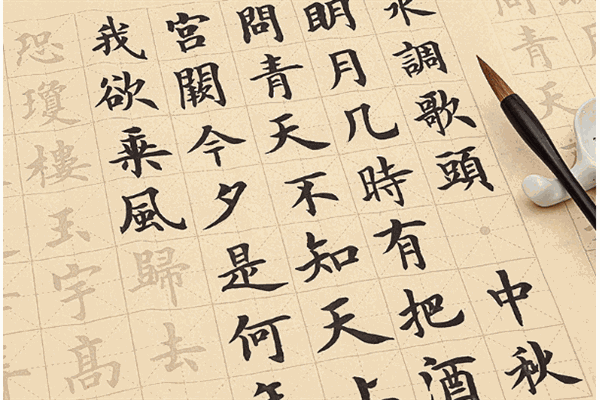 問青天
水調歌頭・中秋
明月几時有把酒
問青天不知天上
宮闕今夕是何年
我欲乘風歸去
恐瓊樓玉宇高